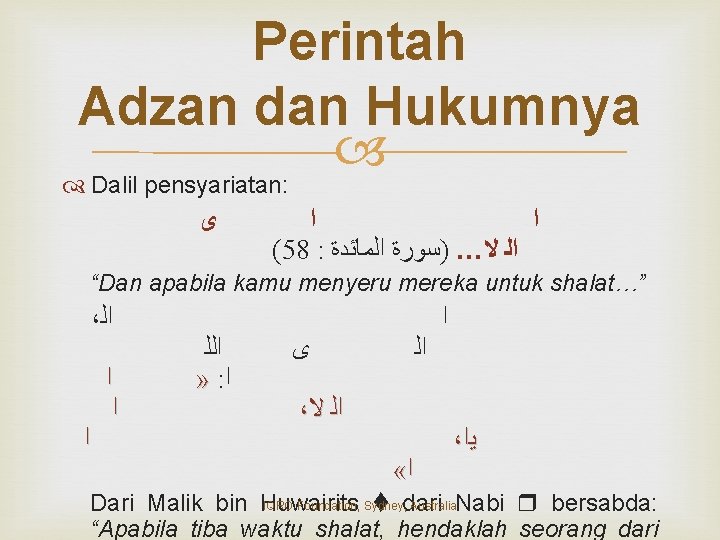 Perintah
Adzan dan Hukumnya
Dalil pensyariatan:
ا ا ى
ﺍﻟـ ﻻ… (سورة المائدة : 58)
“Dan apabila kamu menyeru mereka untuk shalat…”
ا ﺍﻟـ،
ﺍﻟـ ى ﺍﻟﻠـ
ا: » ا
ﺍﻟـ ﻻ، ا
يا، ا
ا«
Dari Malik bin Huwairits ♦ dari Nabi ❒ bersabda:
IQRO Foundation, Sydney, Australia
“Apabila tiba waktu shalat, hendaklah seorang dari